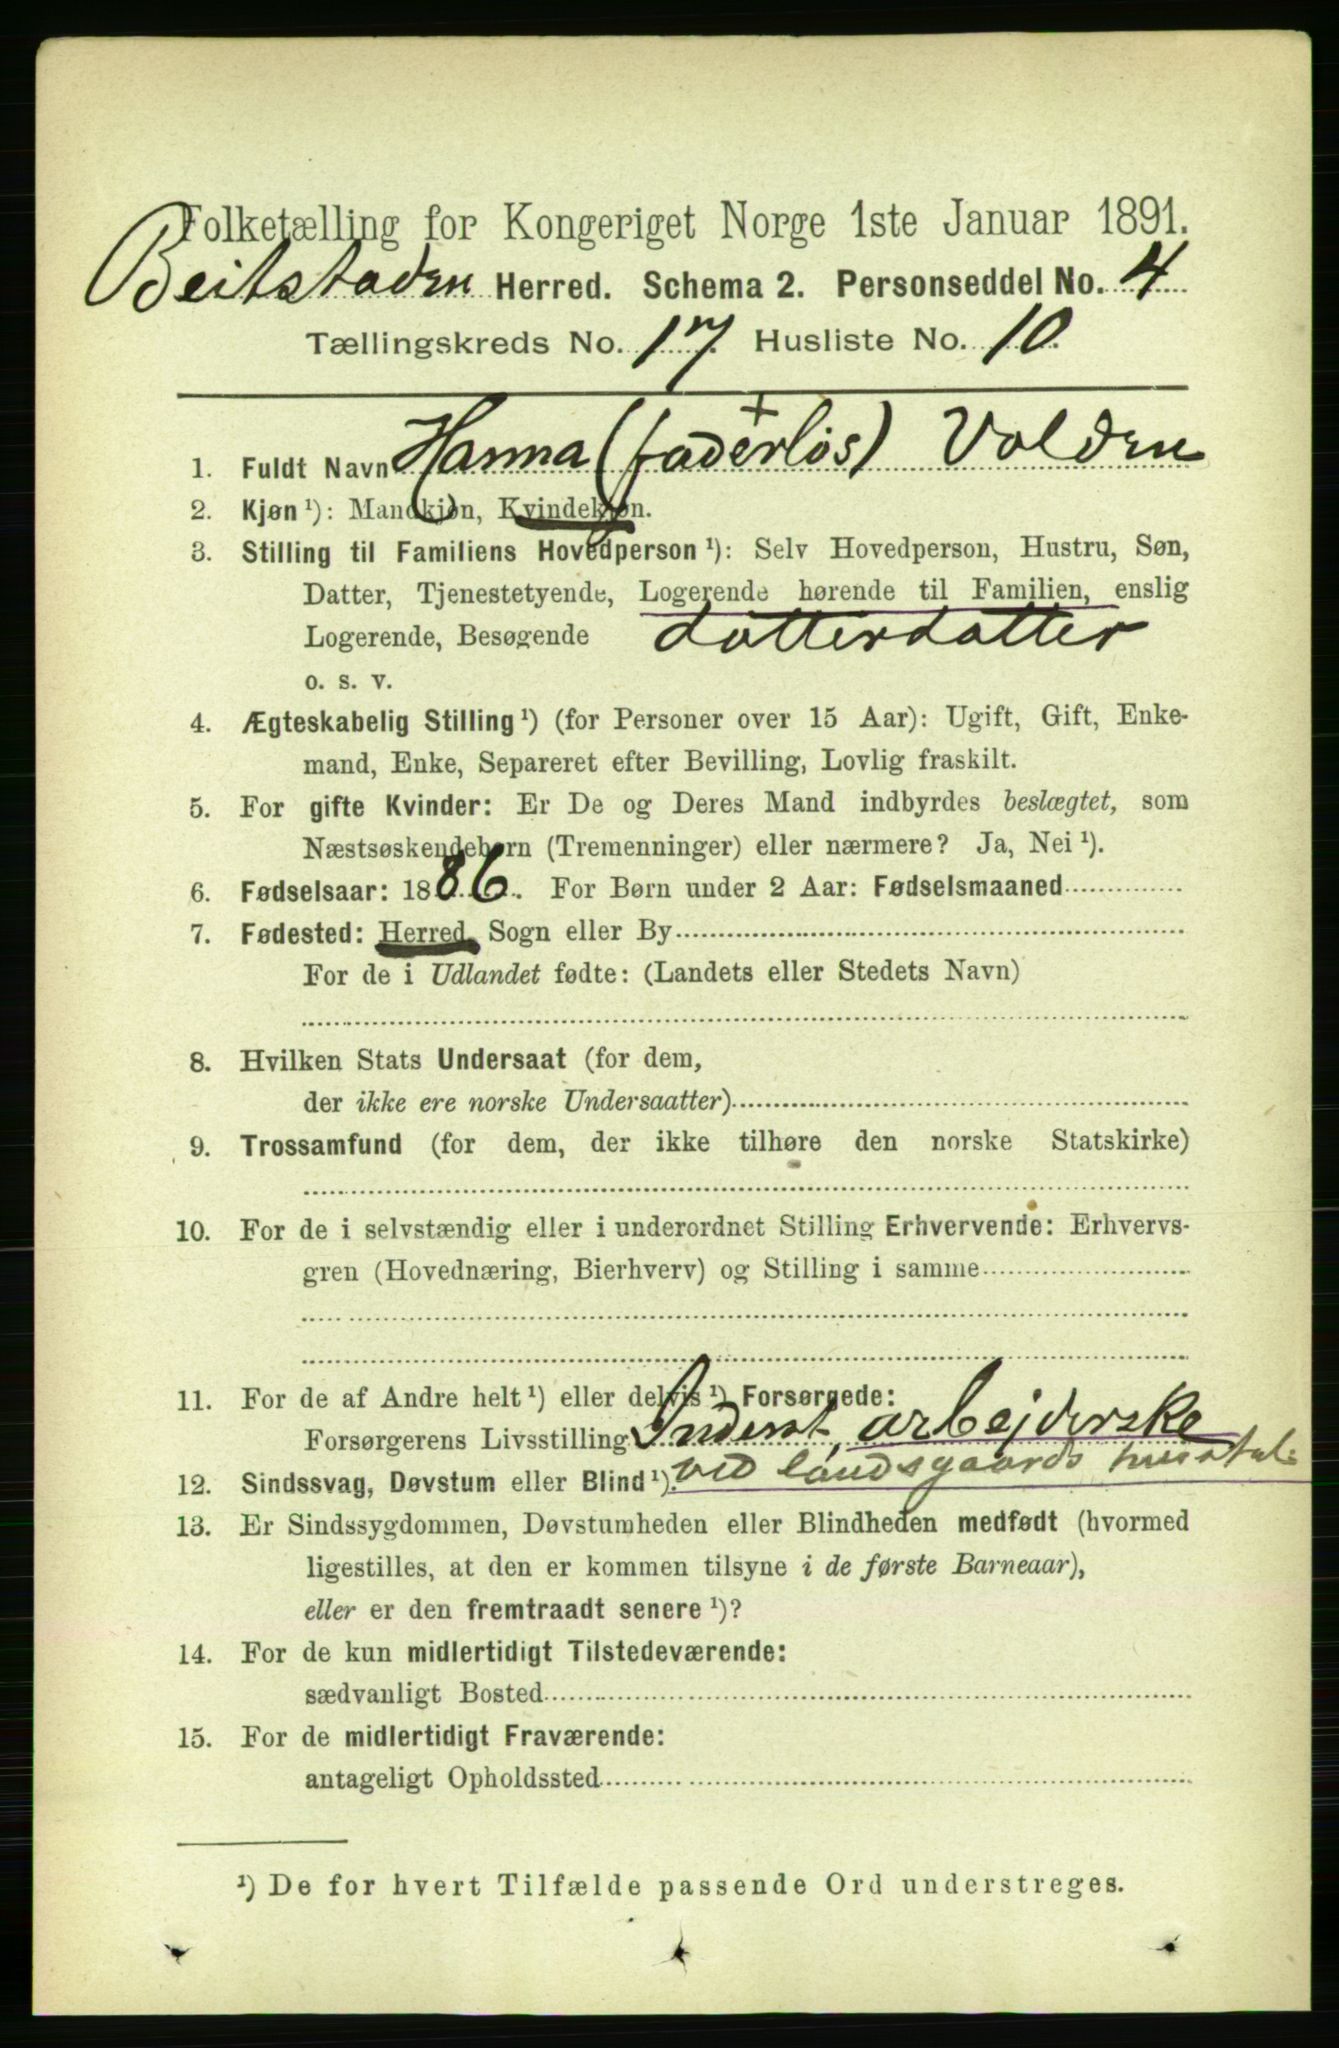 Folketælling for Kongeriget Norge 1ste Januar 1891.
Beitstaden Herred. Schema 2. Personseddel No. 4
Tællingskreds No. 17. Husliste No. 10.
1. Fuldt Navn Hanna (faderløs) Volden
2. Kjøn ¹): Mandkjøn, Kvindekjøn.
3. Stilling til Familiens Hovedperson ¹): Selv Hovedperson, Hustru, Søn,
Datter, Tjenestetyende, Logerende hørende til Familien, enslig
Logerende, Besøgende datterdatter
o. s. v.
4. Ægteskabelig Stilling ¹) (for Personer over 15 Aar): Ugift, Gift, Enke-
mand, Enke, Separeret efter Bevilling, Lovlig fraskilt.
5. For gifte Kvinder: Er De og Deres Mand indbyrdes beslægtet, som
Næstsøskendebørn (Tremenninger) eller nærmere? Ja, Nei ¹).
6. Fødselsaar: 1886. For Børn under 2 Aar: Fødselsmaaned
7. Fødested: Herred, Sogn eller By
For de i Udlandet fødte: (Landets eller Stedets Navn)
8. Hvilken Stats Undersaat (for dem,
der ikke ere norske Undersaatter)
9. Trossamfund (for dem, der ikke tilhøre den norske Statskirke)
10. For de i selvstændig eller i underordnet Stilling Erhvervende: Erhvervs-
gren (Hovednæring, Bierhverv) og Stilling i samme
11. For de af Andre helt ¹) eller delvis ¹) Forsørgede:
Forsørgerens Livsstilling Inderst, arbejderske
ved landsgaards
12. Sindssvag, Døvstum eller Blind ¹).
13. Er Sindssygdommen, Døvstumheden eller Blindheden medfødt (hvormed
ligestilles, at den er kommen tilsyne i de første Barneaar),
eller er den fremtraadt senere ¹)?
14. For de kun midlertidigt Tilstedeværende:
sædvanligt Bosted
15. For de midlertidigt Fraværende:
antageligt Opholdssted
¹) De for hvert Tilfælde passende Ord understreges.